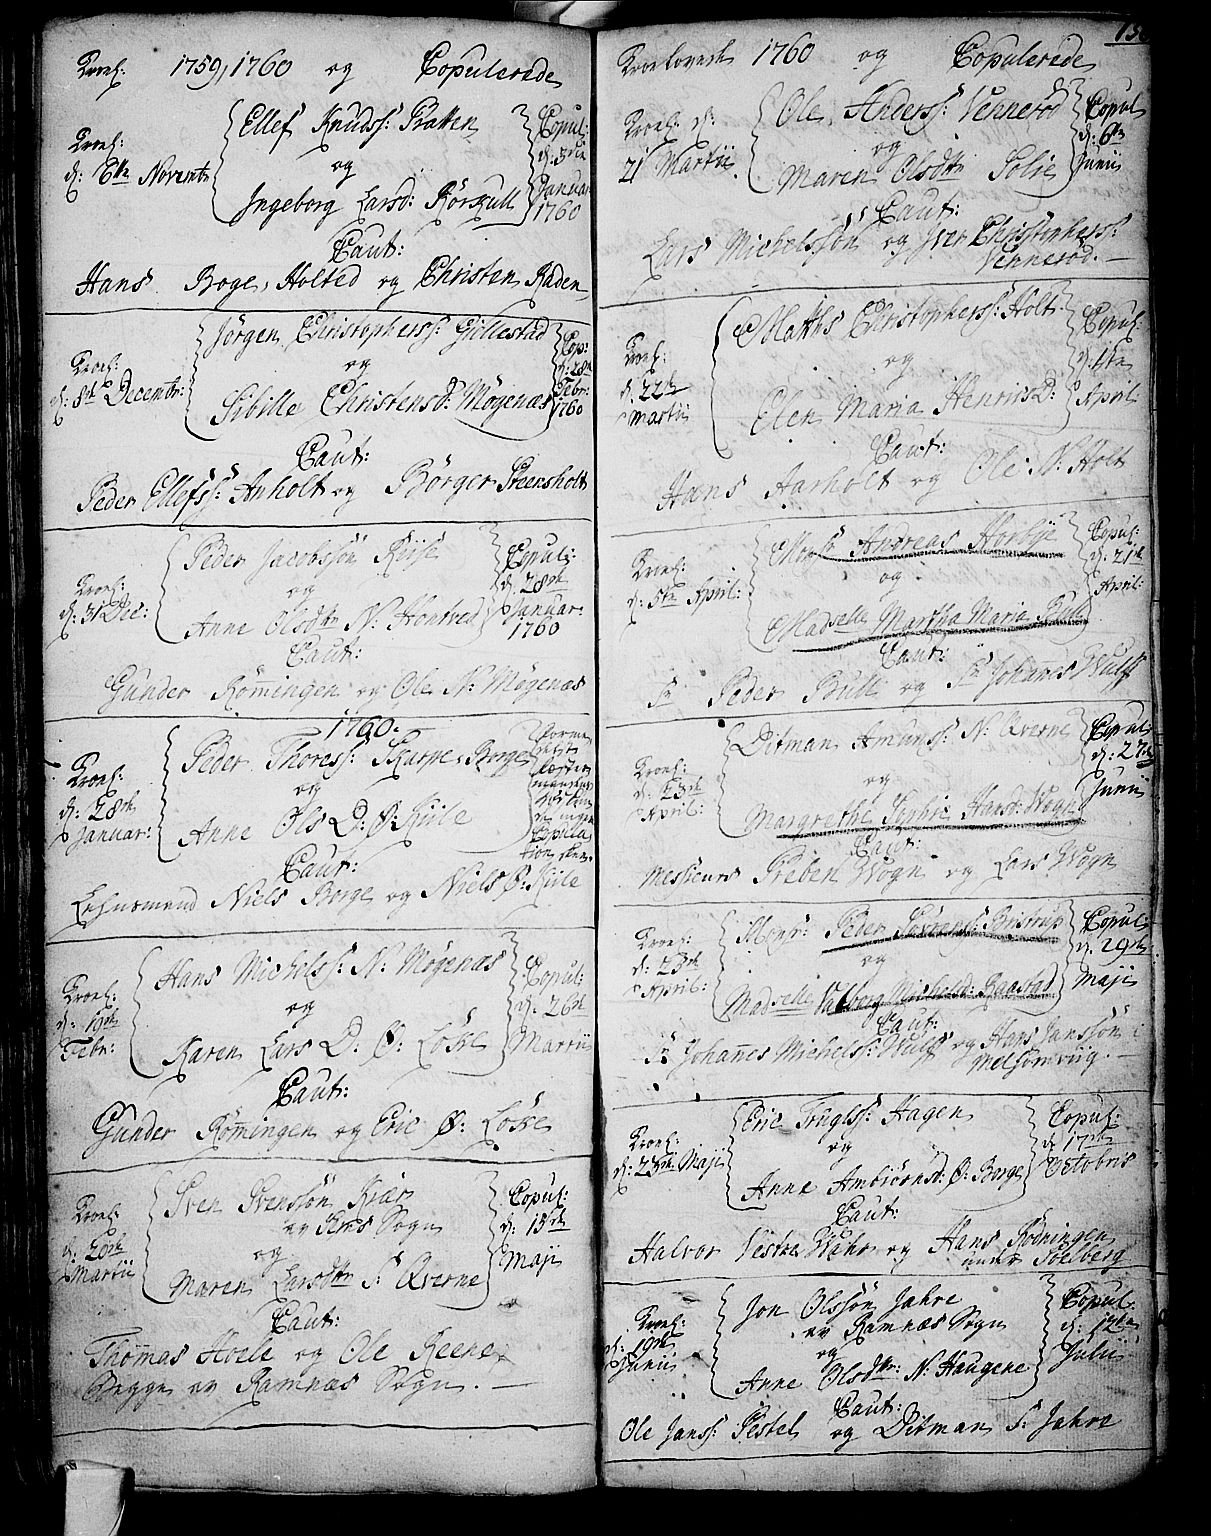 Trol: 1759, 1760 og Copulerede
Trol: d: 6te Novembr
Ellef Knudss: Pratten
og
Ingeborg Larsd: Rörkull
Copul: d: 3die Januar 1760
Caut:
Hans Boge, Holted og Christen Raden
Trol: d: 8de Decembr:
Jörgen Christopherss: Gillestad
og
Sibille Christensd: Møgenæs
Cop: d: 28de Febr: 1760
Caut:
Peder Ellefss: Anholt og Börger Steensholt
Trol: d: 31 Dec:
Peder Jacobssön Riise
og
Anne Olsdtr N: Hontved
Copul: d: 28de Januar: 1760
Caut:
Gunder Römingen og Ole N: Møgenæs
1760.
Trol: d: 28de Januar:
Peder Thoress: Skarpe, Borge
og
Anne Ols D: Ø: Kiile
Caut:
Lehnsmand Niels Borge og Niels Ø: Kiile
Trol: d: 19de Febr:
Hans Michelss: N: Møgenæs
og
Karen Lars D: Ø: Løke
Copul: d: 26de Martii
Caut:
Gunder Römingen og Eric Ø: Løke
Trol: d: 20de Martii
Sven Svenssön Kiær
av Sogn
og
Maren Larsdtr S: Qverne
Copul: d: 15de Maji
Caut:
Thomas Hoele og Ole Reene
Begge av Ramnæs Sogn.
Troelovede 1760 og Copulerede
Troel: d: 21 Martii
Ole Anderss: Vennerød
og
Maren Olsdtr Solie
Copul: d: 6te Junii
Caut:
Lars Michelssön og Iver Christopherss:
Vennerød.
Troel: d: 22de Martii
Mathis Christopherss: Holt
og
Elen Maria Henris D:
Copul: d: April:
Caut:
Hans Aarholt og Ole N: Holt
Troel: d: 5te April:
Monsr Andreas Horbye
og
Madselle Martha Maria Bull
Copul: d: 21de April:
Caut:
Sr Peder Bull og Sr Johanes Wulff
Troel: d: 23de April:
Ditman Amunss: N: Qverne
og
Margrethe Sophie Hansd: Wogn
Copul: d: 27de Junii
Caut:
Messieurs Preben Wogn og Lars Wogn
Troel: d: 23de April:
Monsr: Peder Sörenss: Bristrup
og
Madselle Valborg Michelsd: Baastad
Copul: d: 29de Maji
Caut:
Sr Johanes Michelss: Wulff og Hans Janssön i
Melsomviig.
Troel: d: 23de Maji
Eric Trugls: Hagen
og
Anne Ambiörnsd: Ø: Borge
Copul: d: 17de Octobris
Caut:
Halvor Vestre Wahr og Hans Rödningen
under Soelberg
Troel: d: 19de Junii
Jon Olssön Jahre
av Ramnæs Sogn
og
Anne Olsdtr: N: Haugene
Copul: d: 12te Julii
Caut:
Ole Janss: Pestel og Ditman S: Jahre